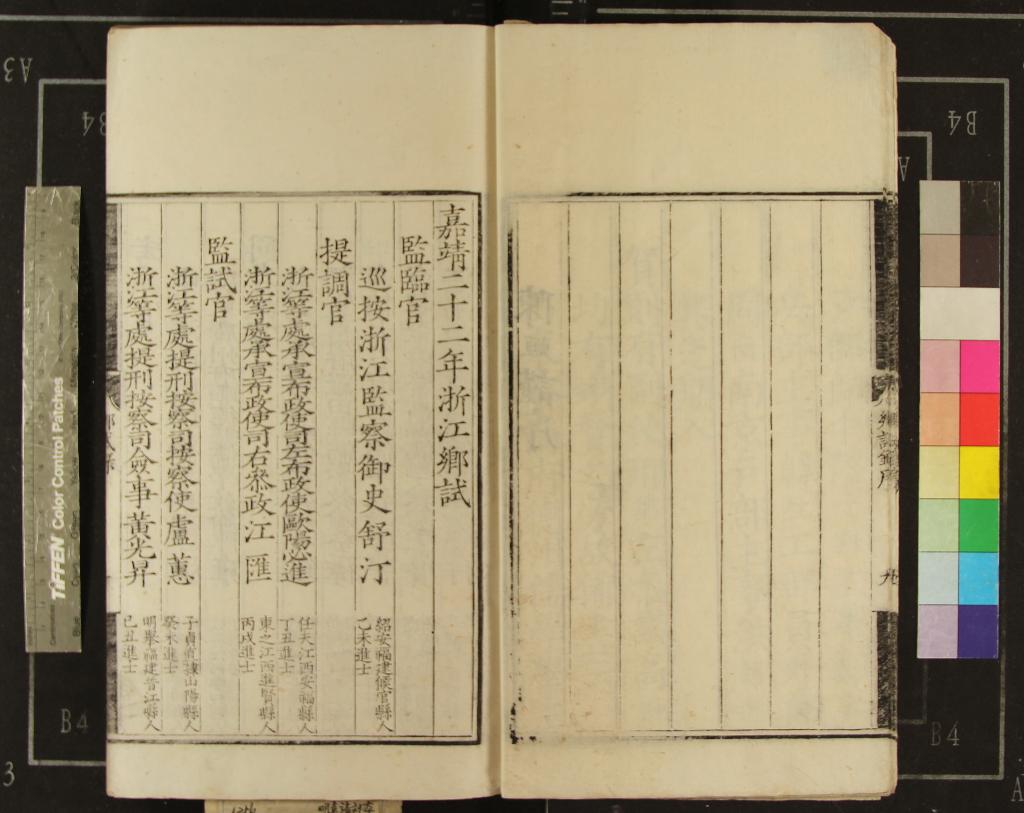 鄉試錄序
九
嘉靖二十二年浙江鄉試
監臨官
巡按浙江監察御史舒汀
紹安福建侯官縣人
乙未進士
提調官
浙江等處承宣布政使司左布政使歐陽必進
任夫江西安福縣人
丁丑進士
浙江等處承宣布政使司右叅政江匯
東之江西進賢縣人
丙戌進士
監試官
浙江等處提刑按察司按察使盧蕙
子貞直隸山陽縣人
癸未進士
浙江等處提刑按察司僉事黃光昇
明舉福建晉江縣人
己丑進士
TIFFEN Color Control Patches
A3
B4
B4
B4
B4
A
3
A